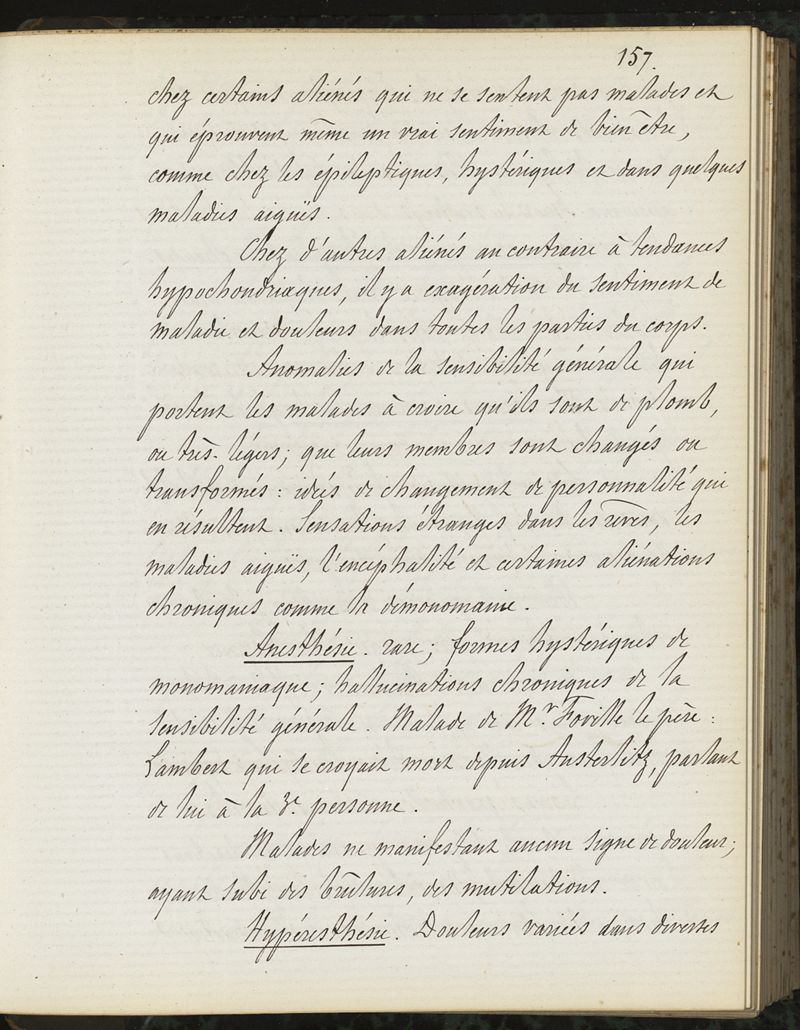 157.
chez certains aliénés qui ne se sentent pas malades et
qui éprouvent même un vrai sentiment de bien être,
comme chez les épileptiques, hystériques et dans quelques
maladies aiguës.
Chez d'autres aliénés au contraire à tendances
hypochondriaques, il y a exagération du sentiment de
maladie et douleurs dans toutes les parties du corps.
Anomalies de la sensibilité générale qui
portent les malades à croire qu'ils sont de plomb,
ou très-légers; que leurs membres sont changés ou
transformés : idées de changement de personnalité qui
en résultent. Sensations étranges dans les rêves, les
maladies aiguës, l'encéphalité et certaines aliénations
chroniques comme la démonomanie.
Anesthésie. rare; formes hystériques de
monomaniaque; hallucinations chroniques de la
sensibilité générale. Malade de Mr Foville le père :
Lambert qui se croyait mort depuis Austerlitz, parlant
de lui à la 3e personne.
Malades ne manifestant aucun signe de douleur;
ayant subi des brûlures, des mutilations.
Hypéresthésie. Douleurs variées dans diverses